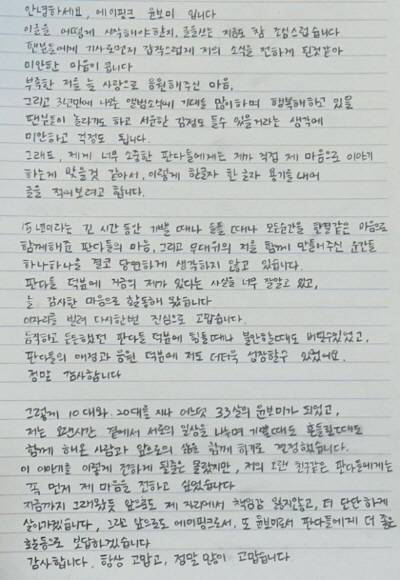 안녕하세요, 에이핑크 윤보미 입니다
이 글을 어떻게 시작해야할지, 글을쓰는 지금도 참 조심스럽습니다
팬분들에게 기사로먼저 갑작스럽게 저의 소식을 전하게 된것같아
미안한 마음이 큽니다
부족한 저를 늘 사랑으로 응원해주신 마음,
그리고 3년만에 나올 앨범소식에 기대도 많이하며 행복해하고 있을
팬분들이 놀라기도 하고 서운한 감정도 들수 있을거라는 생각에
미안하고 걱정도 됩니다.
그래도, 제게 너무 소중한 판다들에게는 제가 직접 제 마음으로 이야기
하는게 맞을것 같아서, 이렇게 한글자 한 글자 용기를 내어
글을 적어보려고 합니다.
15년이라는 긴 시간 동안 기쁠 때나 슬플 때나 모든순간을 한결같은 마음으로
함께해준 판다들의 마음, 그리고 무대위의 저를 함께 만들어주신 순간들
하나하나를 결코 당연하게 생각하지 않고 있습니다.
판다들 덕분에 지금의 제가 있다는 사실을 너무 잘알고 있고,
늘 감사한 마음으로 활동해 왔습니다
이자리를 빌려 다시한번 진심으로 고맙습니다.
묵직하고 든든했던 판다들 덕분에 힘들때나 불안할때도 버틸수있었고,
판다들의 애정과 응원 덕분에 저도 더더욱 성장할수 있었어요.
정말 감사합니다
그렇게 10대와 20대를 지나 어느덧 33살의 윤보미가 되었고,
저는 오랜시간 곁에서 서로의 일상을 나누며 기쁠때도 흔들릴때도
함께 해온 사람과 앞으로의 삶을 함께 하기로 결정했습니다.
이 이야기를 이렇게 전하게 될줄은 몰랐지만, 저의 오랜 친구같은 판다들에게는
꼭 먼저 제 마음을 전하고 싶었습니다
지금까지 그래왔듯 앞으로도 제 자리에서 책임감 잃지않고, 더 단단하게
살아가겠습니다, 그리고 앞으로도 에이핑크로서, 또 윤보미로서 판다들에게 더 좋은
활동으로 보답하겠습니다
감사합니다. 항상 고맙고, 정말 많이 고맙습니다